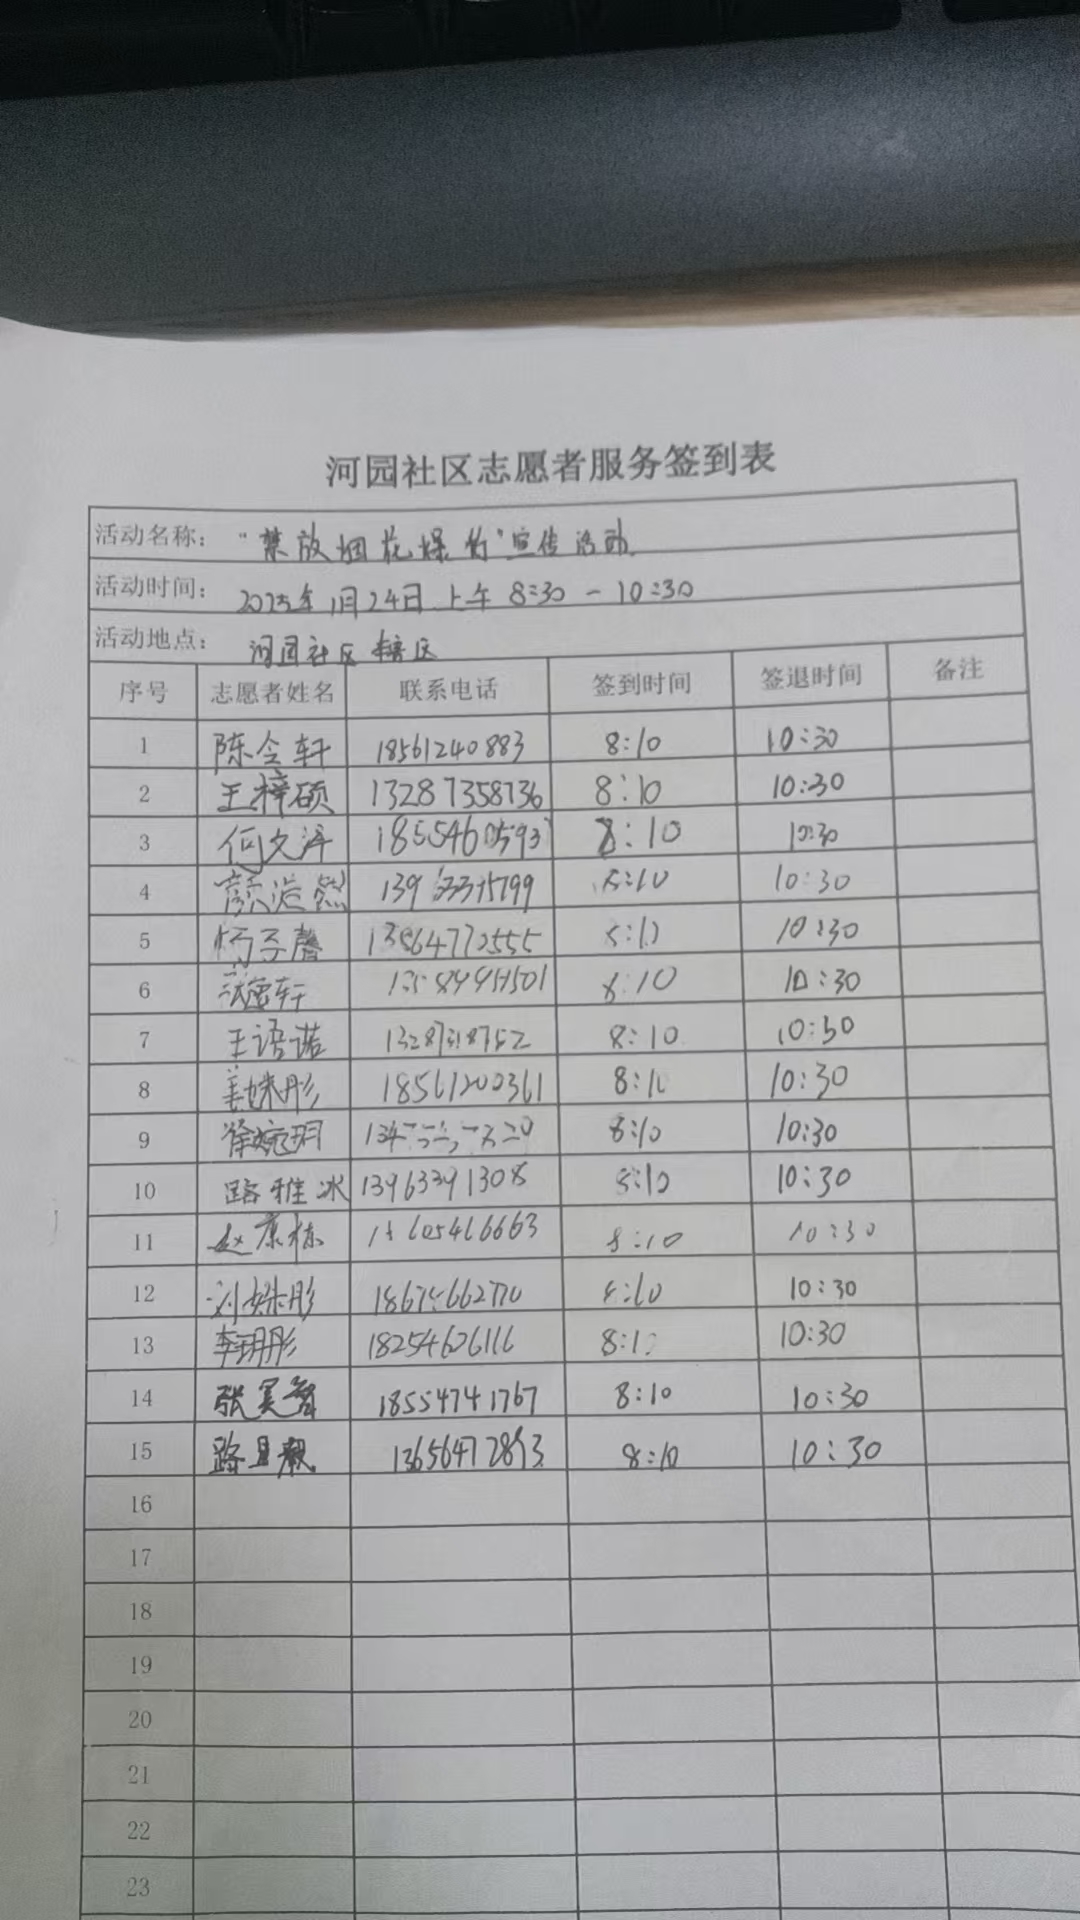 河园社区志愿者服务签到表
活动名称： “禁放烟花爆竹”宣传活动
活动时间： 2025年1月24日上午 8:30 - 10:30
活动地点： 河园社区辖区
序号 志愿者姓名 联系电话 签到时间 签退时间 备注
1 陈令轩 18561240883 8:10 10:30
2 王梓硕 13287358736 8:10 10:30
3 何文泽 18554610593 8:10 10:30
4 颜浩然 8:10 10:30
5 子馨 13864772555 8:10 10:30
6 8:10 10:30
7 王语诺 8:10 10:30
8 姜姝彤 18561200361 8:10 10:30
9 徐婉玥 8:10 10:30
10 路雅冰 13963391308 8:10 10:30
11 赵康栋 8:10 10:30
12 刘姝彤 8:10 10:30
13 李玥彤 18254626116 8:10 10:30
14 张昊智 18554741767 8:10 10:30
15 路 8:10 10:30
16
17
18
19
20
21
22
23